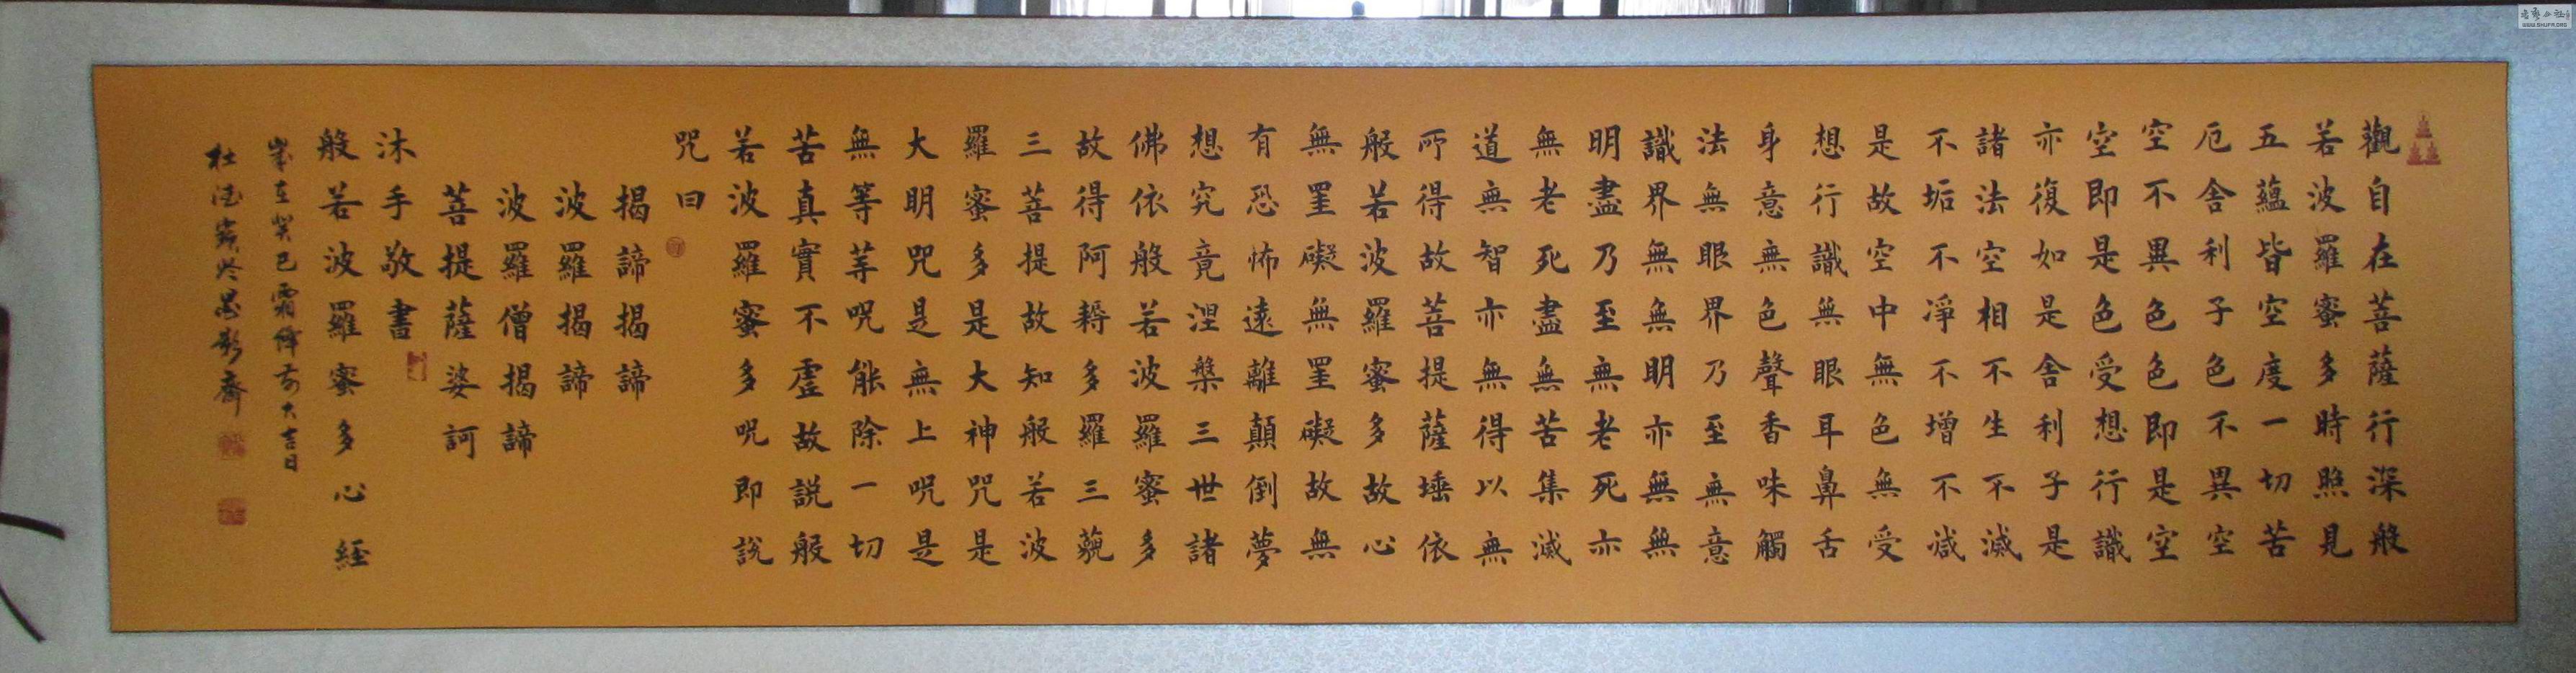 觀自在菩薩行深般
若波羅蜜多時照見
五蘊皆空度一切苦
厄舍利子色不異空
空不異色色即是空
空即是色受想行識
亦復如是舍利子是
諸法空相不生不滅
不垢不淨不增不減
是故空中無色無受
想行識無眼耳鼻舌
身意無色聲香味觸
法無眼界乃至無意
識界無無明亦無無
明盡乃至無老死亦
無老死盡無苦集滅
道無智亦無得以無
所得故菩提薩埵依
般若波羅蜜多故心
無罣礙無罣礙故無
有恐怖遠離顛倒夢
想究竟涅槃三世諸
佛依般若波羅蜜多
故得阿耨多羅三藐
三菩提故知般若波
羅蜜多是大神咒是
大明咒是無上咒是
無等等咒能除一切
苦真實不虛故說般
若波羅蜜多咒即說
咒曰
揭諦揭諦
波羅揭諦
波羅僧揭諦
菩提薩婆訶
沐手敬書
般若波羅蜜多心經
歲在癸巳霜降前大吉日
杜德於影齋
WWW.SHUFA.ORG